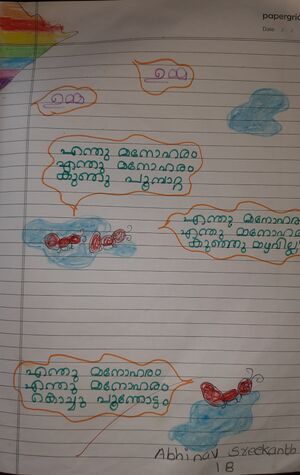 papergri
Date / /
എന്തു മനോഹരം
എന്തു മനോഹരം
കുഞ്ഞു പൂമ്പാറ്റ
എന്തു മനോഹര
എന്തു മനോഹര
കുഞ്ഞു മഴവില്ല
എന്തു മനോഹരം
എന്തു മനോഹരം
കൊച്ചു പൂന്തോട്ടം
Abhinav Sreekanth
1B